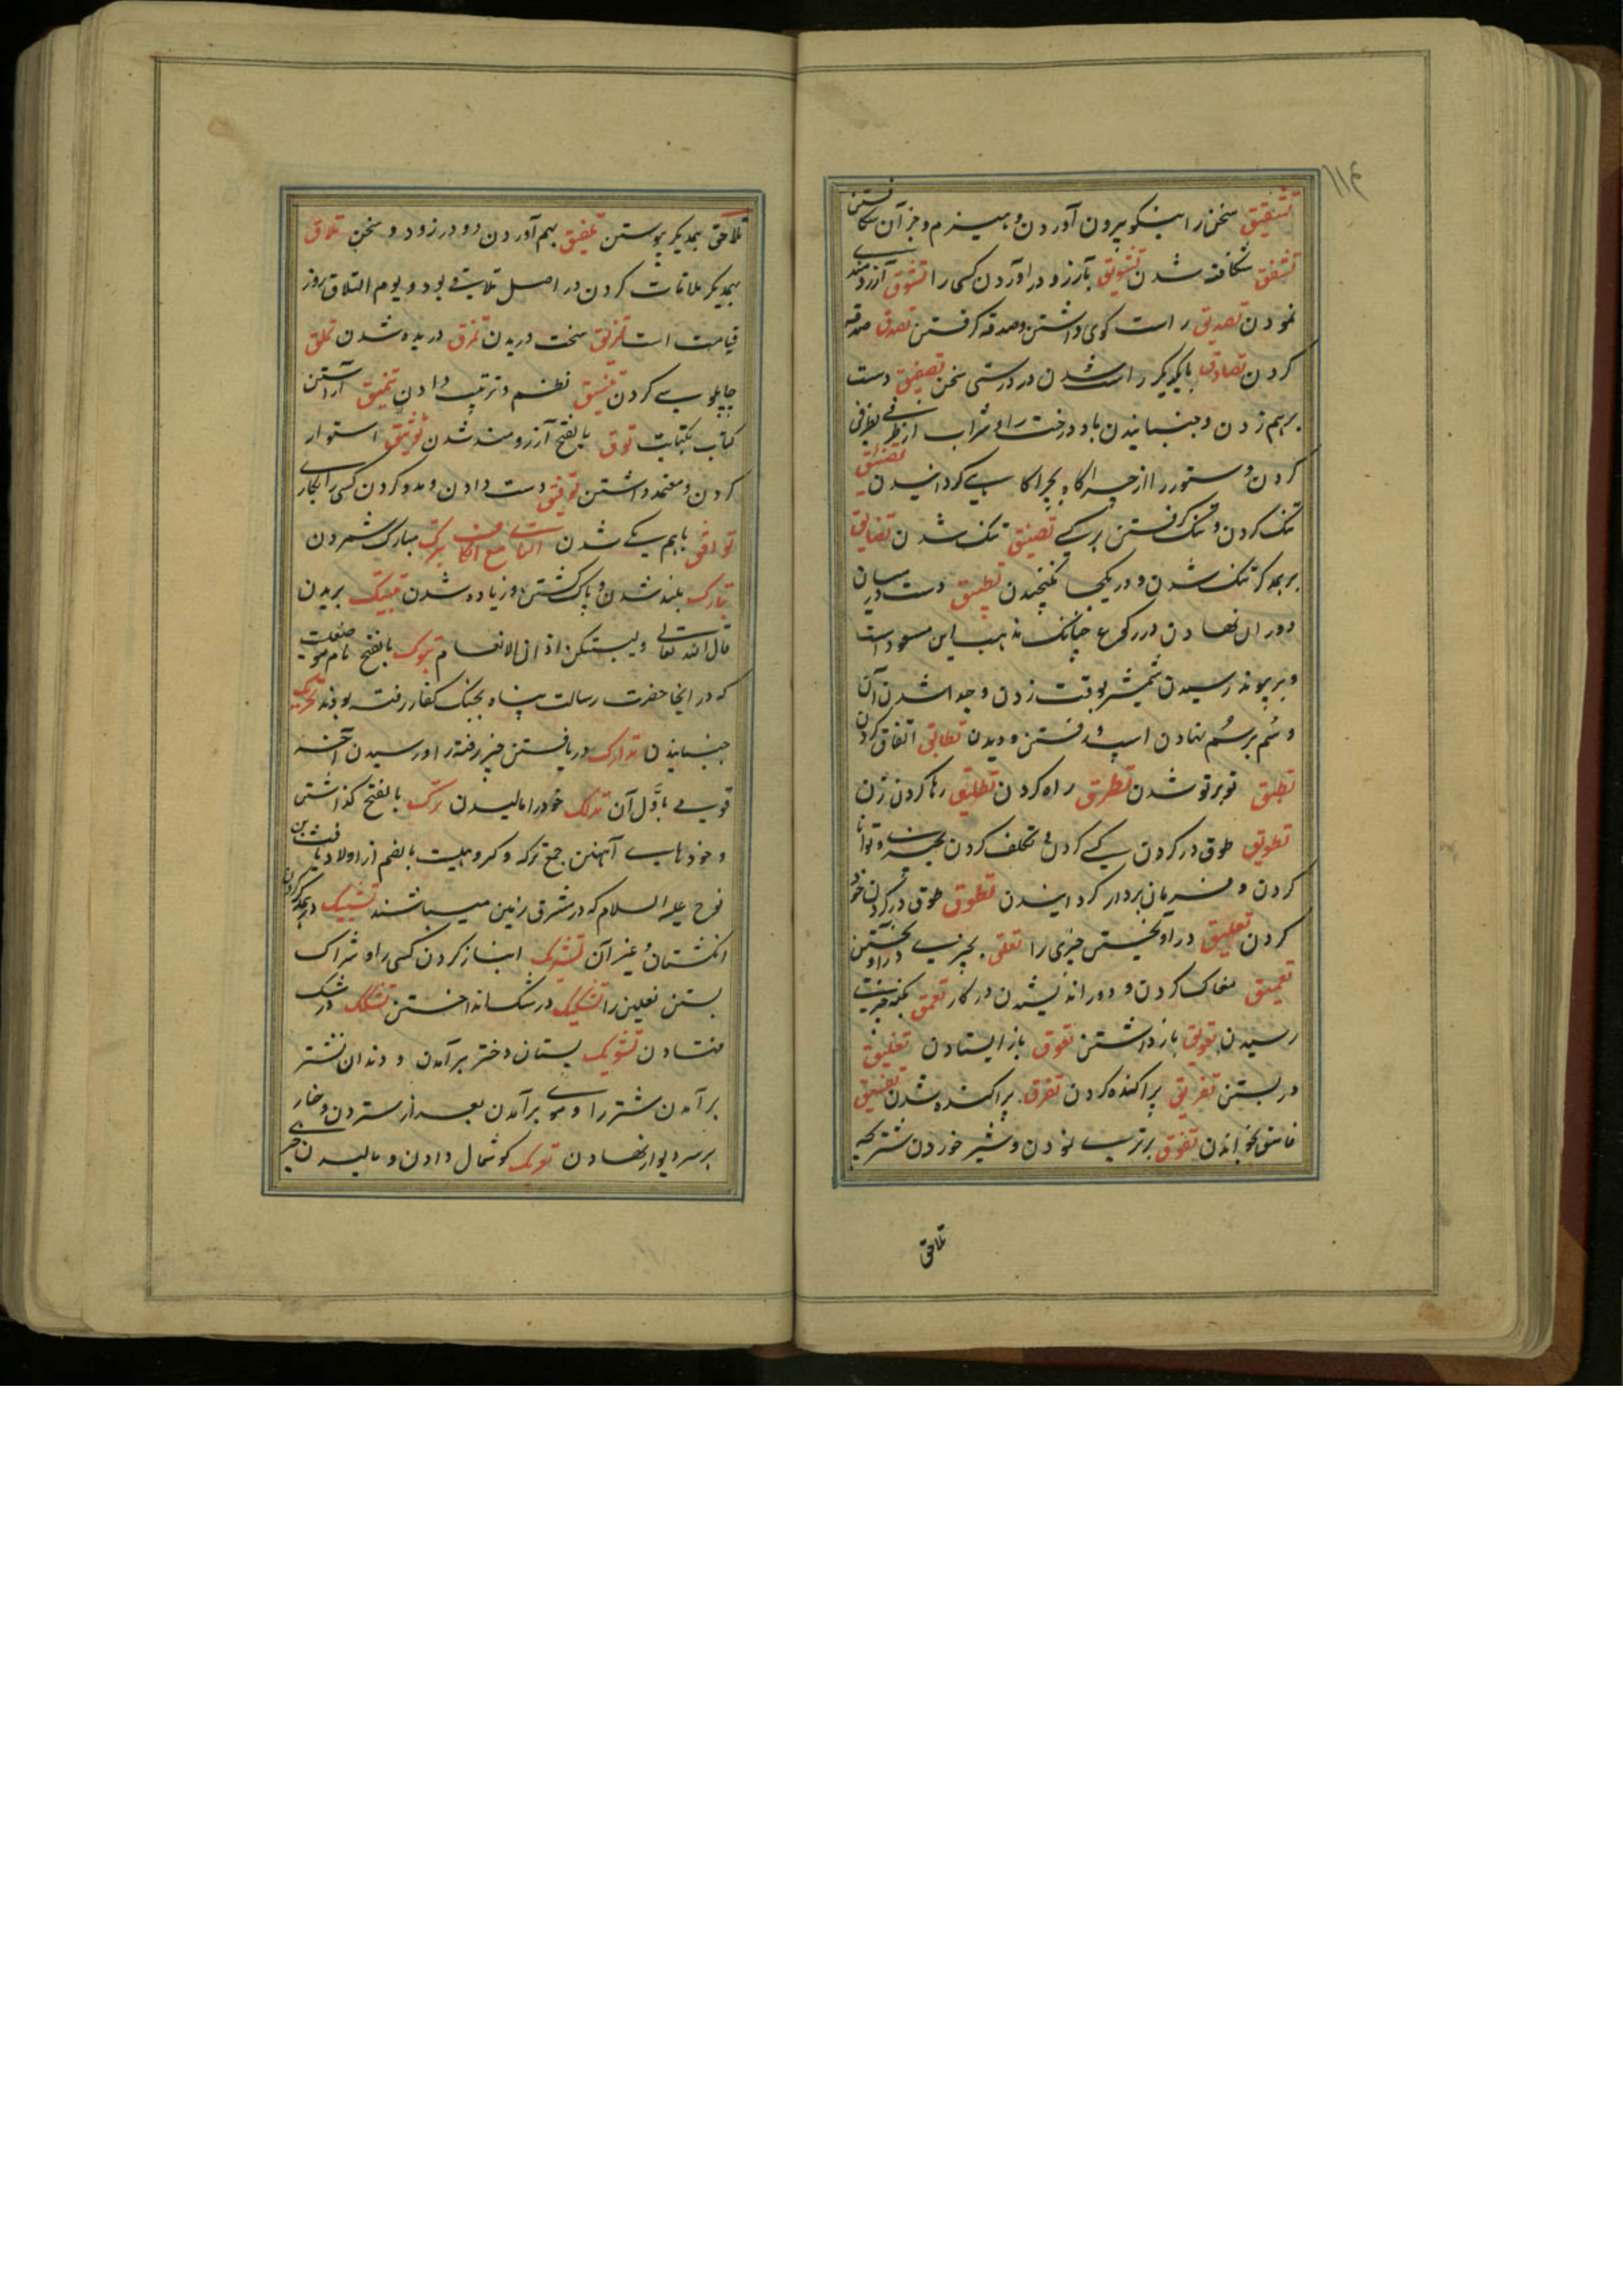 ۱۱۴
تشقیق سخن را نیکو بیرون آوردن و هیزم و جز آن شکافتن
تشقق شکافته شدن تشویق بآرزو در آوردن کسی را تشوق آرزومندی
نمودن تصدیق راست کوی داشتن و صدقه کرفتن تصدق صدقه
کردن تصادق با یکدیکر راست شدن در درستی سخن تصفیق دست
برهم زدن و جنبانیدن باد درخت را و شراب از ظرفی بظرفی
کردن و ستور را از چراکاه بچراکاهی کردانیدن تضییق
تنک کردن و تنک کرفتن بر کسی تضیق تنک شدن تضایق
بر همدکر تنک شدن و در یکجا نکنجیدن تطبیق دست در میان
دو ران نهادن در رکوع چنانک مذهب ابن مسعود است
و بر پیوند رسیدن شمشیر بوقت زدن و جدا شدن آن
و سُم بر سُم نهادن اسپ در رفتن و دیدن تطابق اتفاق کردن
تطبق تو بر تو شدن تطرق راه کردن تطلیق رها کردن زن
تطویق طوق در کردن کسی کردن و تکلف کردن بچیزی و توانا
کردن و فرمان بردار کردانیدن تطوق طوق در کردن خود
کردن تعلیق در اویختن چیزی را تعلق بچیزی در آویختن
تعمیق مغاک کردن و دور اندیشیدن در کار تعمق بکنه چیزی
رسیدن تعویق باز داشتن تعوق باز ایستادن تغلیق
در بستن تفریق پراکنده کردن تفرق پراکنده شدن تفسیق
فاسق خواندن تفوق برتری نمودن و شیر خوردن شتر بچه
تلاحق
تلاحق بهمدیکر پیوستن تلفیق بهم آوردن دو درز و دو سخن تلاق
بهمدیکر ملاقات کردن در اصل تلاقی بود و یوم التلاق روز
قیامت است تمزیق سخت دریدن تمزق دریده شدن تملق
چاپلوسی کردن تنسیق نظم و ترتیب دادن تنمیق آراستن
کتاب بکتابت توق بالفتح آرزومند شدن توثیق استوار
کردن و معتمد داشتن توفیق دست دادن و مدد کردن کسی را بکاری
توافق باهم یکی شدن التاء مع الکاف تبرک مبارک شمردن
تبارک بلند شدن و پاک کشتن و زیاده شدن تبتیک بریدن
قال الله تعالی ولیبتکن اذان الانعام تبوک بالفتح نام موضعیست
که در انجا حضرت رسالت پناه بجنک کفار رفته بودند تحریک
جنبانیدن تدارک دریافتن چیز رفته را و رسیدن آخر
قومی باوّل آن تدلک خود را مالیدن ترک بالفتح کذاشتن
و خودهای آهنین جمع ترکه و کروهیست بالضم از اولاد یافث بن
نوح علیه السلام که در مشرق زمین میباشند تشبیک در همدیکر کردن
انکشتان و غیر آن تشریک انباز کردن کسی را و شراک
بستن نعلین را تشکیک در شک انداختن تشکک در شک
فتادن تشویک پستان دختر برآمدن و دندان نشتر
برآمدن شتر را و موی برآمدن بعد از ستردن و خار
بر سر دیوار نهادن تعریک کوشمال دادن و مالیدن چیزی